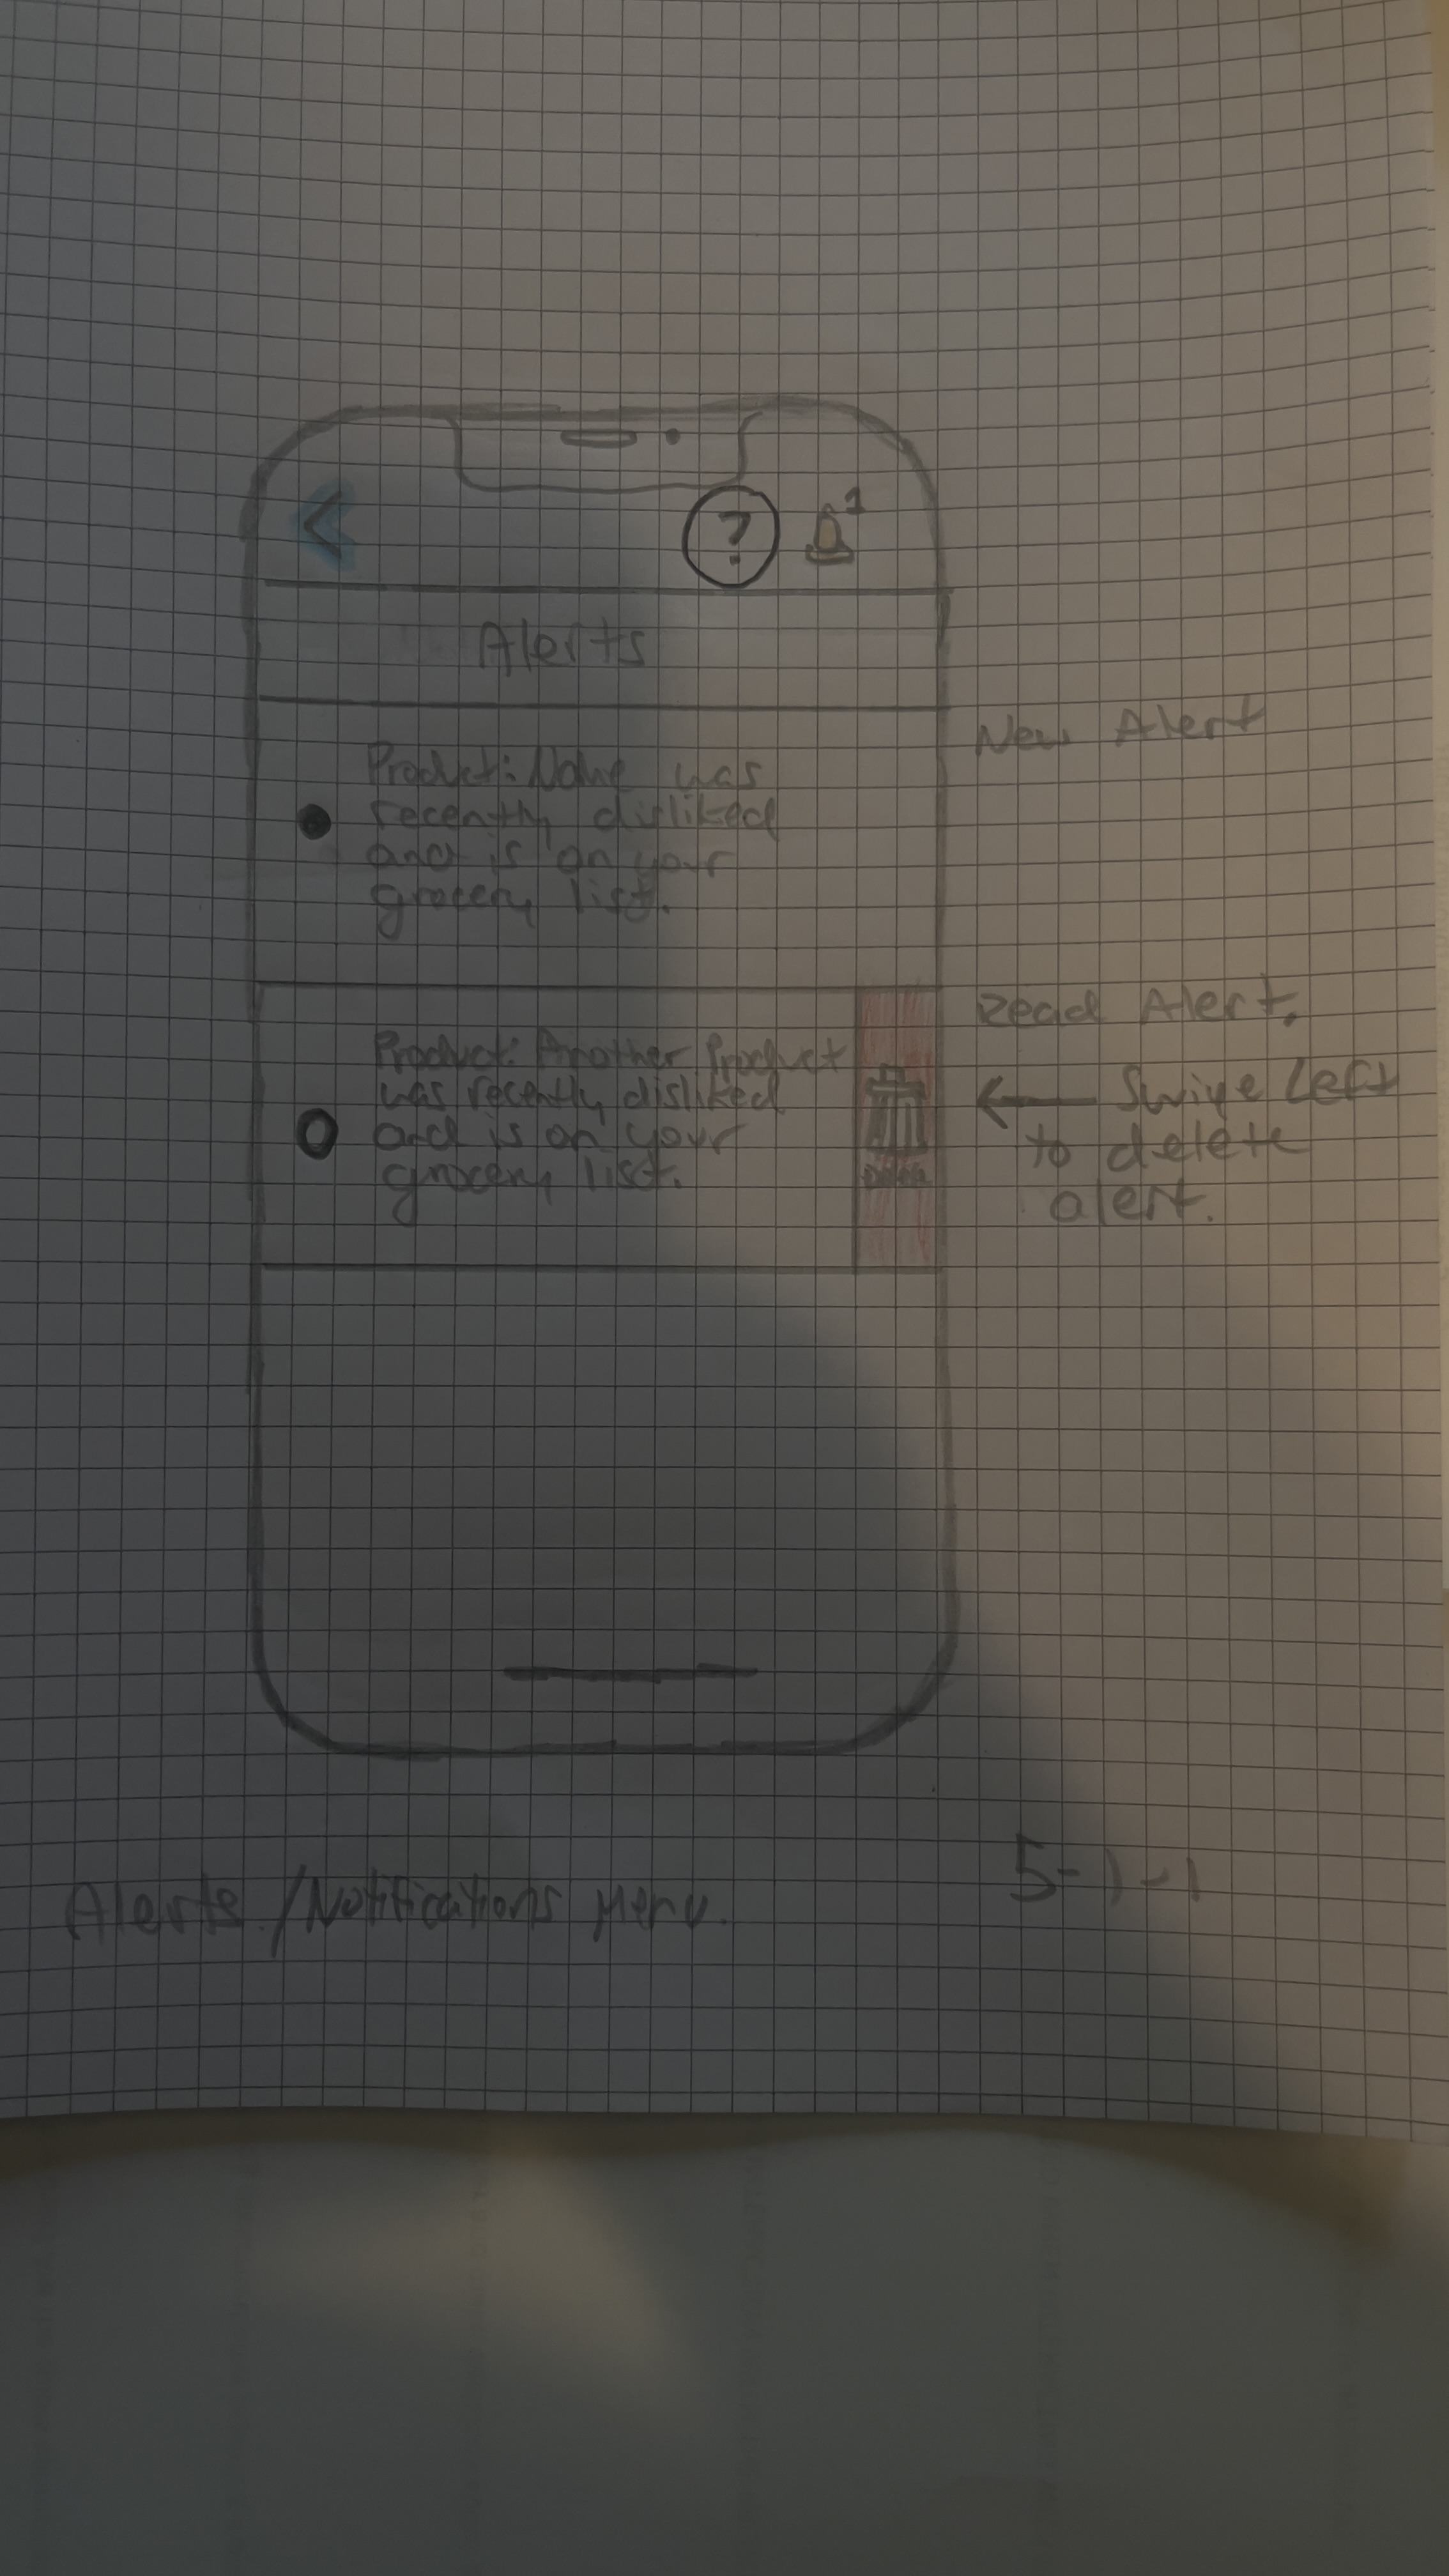 ?
1
Alerts
New Alert
Product: Name was
recently disliked
and is on your
grocery list.
Read Alert.
Product: Another Product
was recently disliked
and is on your
grocery list.
Delete
← Swipe Left
to delete
alert.
Alerts/Notifications Menu.
5-1-1